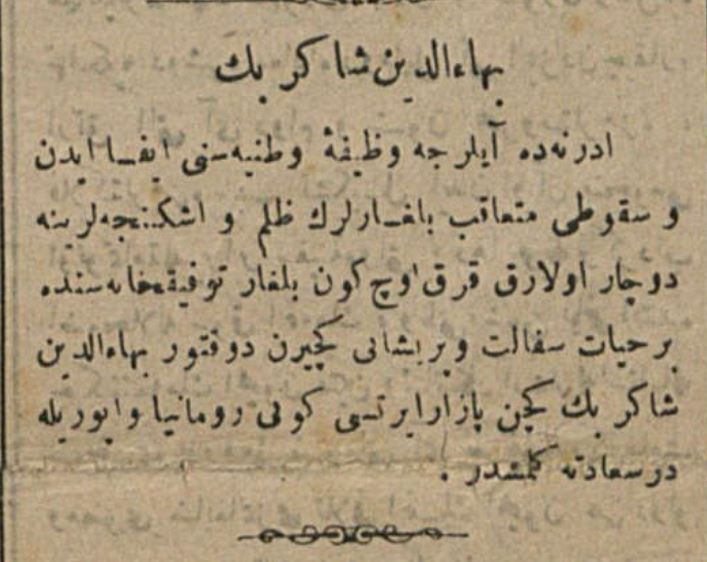 بهاءالدین شاکر بك
ادرنه‌ده آیلرجه وظیفهٔ وطنیه‌سنی ایفا ایدن
و سقوطی متعاقب بلغارلرك ظلم و اشکنجه‌لرینه
دوچار اولارق قرق اوچ کون بلغار توقیفخانه‌سنده
بر حیات سفالت و پریشانی کچیرن دوقتور بهاءالدین
شاکر بك کچن پازار ایرتسی کونی رومانیا واپوریله
درسعادته کلمشدر .